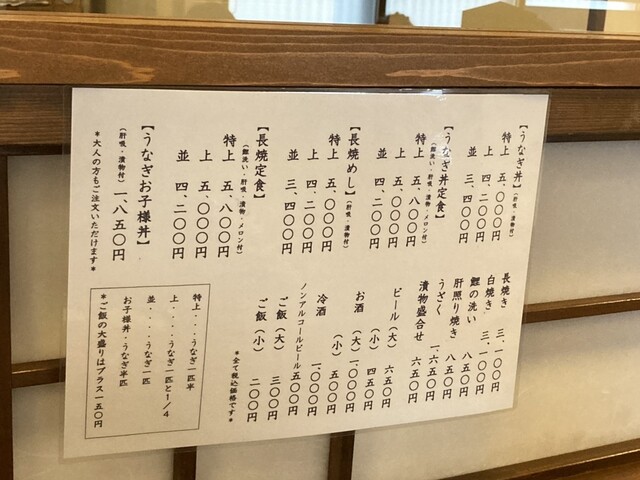 【うなぎ丼】
(肝吸・漬物付)
特上 五、〇〇〇円
上 四、二〇〇円
並 三、四〇〇円
【うなぎ丼定食】
(鯉洗い・肝吸・漬物・メロン付)
特上 五、八〇〇円
上 五、〇〇〇円
並 四、二〇〇円
【長焼めし】
(肝吸・漬物付)
特上 五、〇〇〇円
上 四、二〇〇円
並 三、四〇〇円
【長焼定食】
(鯉洗い・肝吸・漬物・メロン付)
特上 五、八〇〇円
上 五、〇〇〇円
並 四、二〇〇円
【うなぎお子様丼】
(肝吸・漬物付) 一、八五〇円
*大人の方もご注文いただけます*
長焼き 三、一〇〇円
白焼き 三、一〇〇円
鯉の洗い 八五〇円
肝照り焼き 八五〇円
うざく 一、六五〇円
漬物盛合せ 六五〇円
ビール(大) 六五〇円
(小) 四五〇円
お酒 (大) 一、〇〇〇円
(小) 五〇〇円
冷酒 一、〇〇〇円
ノンアルコールビール 五〇〇円
ご飯(大) 三〇〇円
ご飯(小) 二〇〇円
*全て税込価格です*
特上・・・うなぎ一匹半
上・・・・うなぎ一匹と1/4
並・・・・うなぎ一匹
お子様丼・うなぎ半匹
*ご飯の大盛りはプラス一五〇円